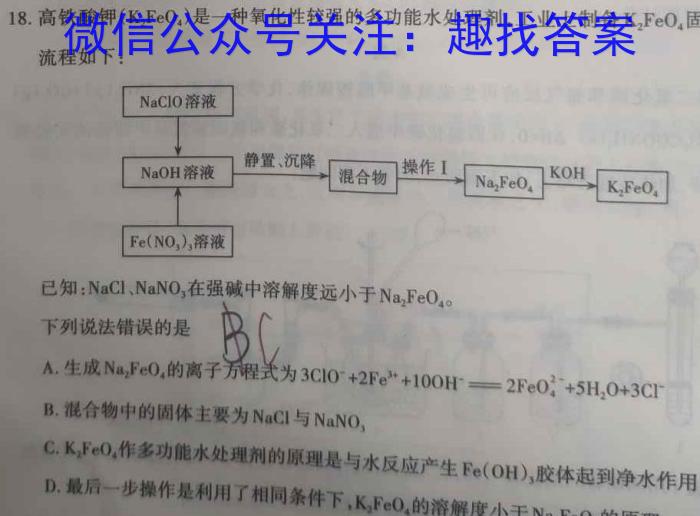 18. 高铁酸钾(K₂FeO₄)是一种氧化性较强的多功能水处理剂,工业上制备K₂FeO₄固
微信公众号关注：趣找答案
流程如下:
NaClO溶液
NaOH溶液
静置、沉降
混合物
操作Ⅰ
Na₂FeO₄
KOH
K₂FeO₄
Fe(NO₃)₃溶液
已知:NaCl、NaNO₃在强碱中溶解度远小于Na₂FeO₄。
下列说法错误的是
BC
A. 生成Na₂FeO₄的离子方程式为3ClO⁻+2Fe³⁺+10OH⁻══2FeO₄²⁻+5H₂O+3Cl⁻
B. 混合物中的固体主要为NaCl与NaNO₃
C. K₂FeO₄作多功能水处理剂的原理是与水反应产生Fe(OH)₃胶体起到净水作用
D. 最后一步操作是利用了相同条件下,K₂FeO₄的溶解度小于Na₂FeO₄的原理